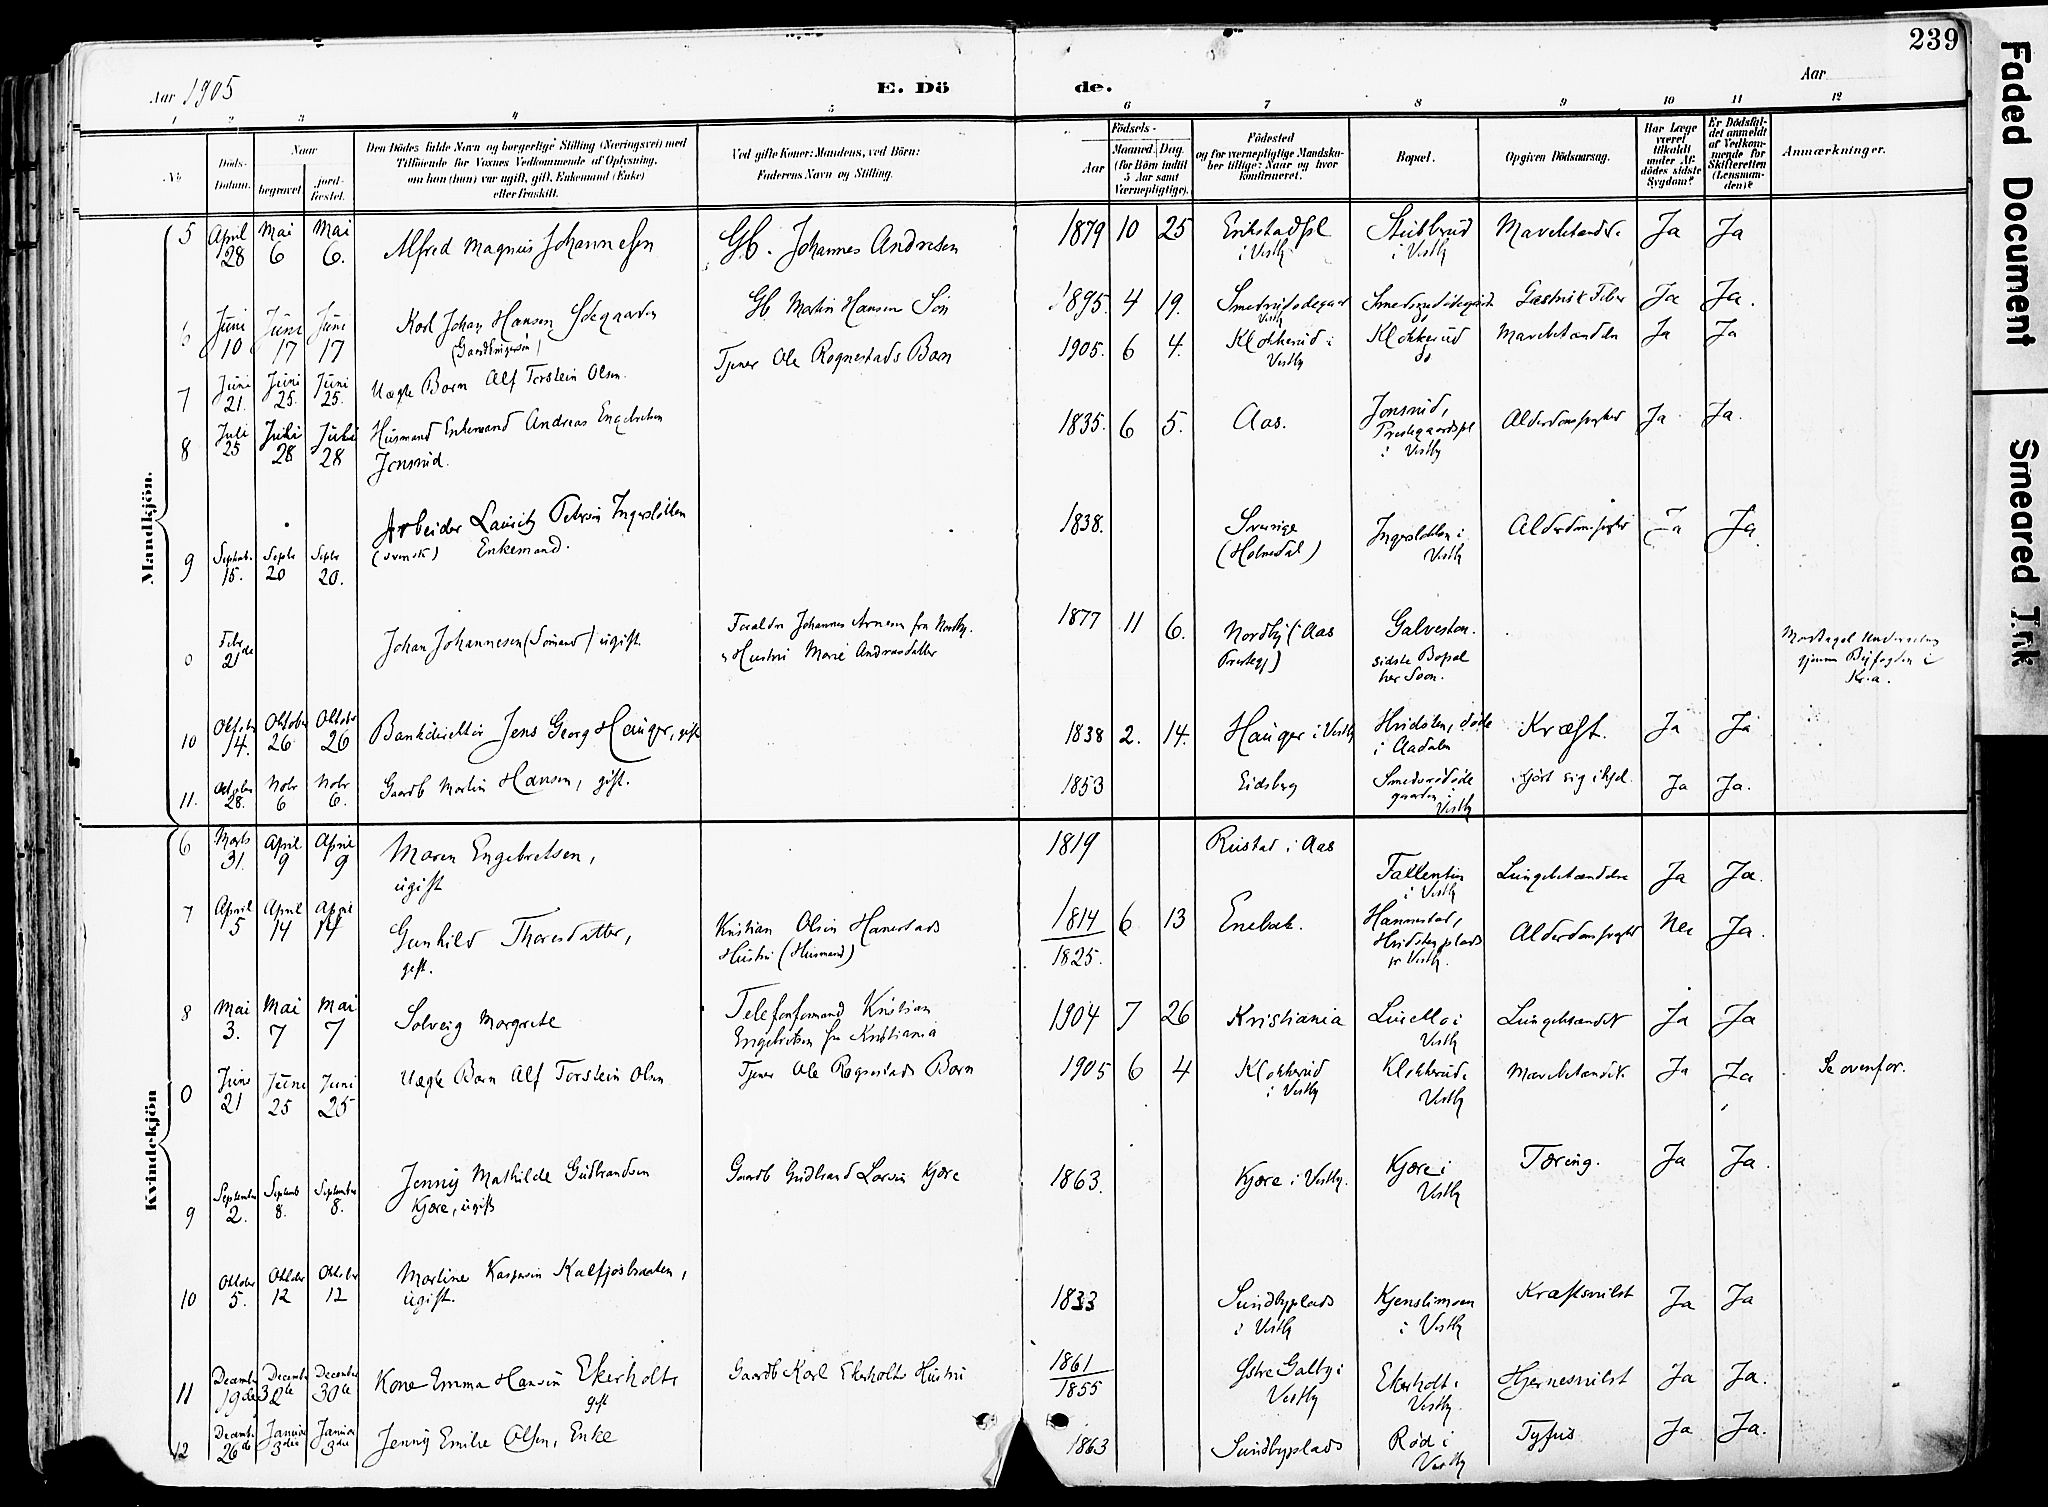 239
Faded Document
Smeared Ink
Aar 1905
E. Dö de.
Aar
1 2 3 4 5 6 7 8 9 10 11 12
№
Döds-Datum.
Naar
begravet
jord-fæstet.
Den Dödes fulde Navn og borgerlige Stilling (Næringsvei) med
Tilföiende for Voxnes Vedkommende af Oplysning,
om han (hun) var ugift, gift, Enkemand (Enke)
eller fraskilt.
Ved gifte Koner: Mandens, ved Börn:
Faderens Navn og Stilling.
Födsels-
Aar
Maaned. Dag.
(for Börn indtil
5 Aar samt
Værnepligtige).
Födested
og for værnepligtige Mandska-
ber tillige: Naar og hvor
konfirmeret.
Bopæl.
Opgiven Dödsaarsag.
Har Læge
været
tilkaldt
under Af-
dödes sidste
Sygdom?
Er Dödsfal-
det anmeldt
af Vedkom-
mende for
Skifteretten
(Lensman-
den)?
Anmærkninger.
Mandkjön.
5 April 28 Mai 6 Mai 6. Alfred Magnus Johannesen Gb. Johannes Andresen 1879 10 25 Erikstadpl i Vestby Stubbrud i Vestby Ja Ja
6 Juni 10 Juni 17 Juni 17 Karl Johan Hansen Ødegaarden Gb. Martin Hansen Søn 1895. 4 19. Vestby do Gastrisk Feber Ja Ja.
7 Juni 21. Juni 25. Juni 25. Uægte Barn Alf Torstein Olsen. Tjener Ole Rognestads Barn 1905. 6 4. Klokkerud i Vestby Klokkerud do Ja Ja
8 Juli 25 Juli 28 Juli 28 Husmand Enkemand Andreas Engebretsen
Jonsrud. 1835. 6 5. Aas. Jonsrud, Prestegaardspl i Vestby Ja Ja.
9 Septemb. 15. Septb 20 Septb 20. Arbeider Lauritz Petersen Ingerslötten
(svensk) Enkemand. 1838. Sverige (Holmedal) Ingerslötten i Vestby Ja Ja
0 Febr 21de Johan Johannesen (Sömand) ugift. Forældre Johannes Arnesen fra Nordby.
Hustru Marie Andreasdatter 1877 11 6. Nordby (i Aas Prestegj) Galveston. sidste Bopæl her Soon. Modtaget Underretning
gjennem Byfogden i
Kr.a.
10 Oktober 14. Oktober 26 Oktober 26 Bankdirektör Jens Georg Hauger, gift 1838 2. 14. Hauger i Vestby Hvidsten, döde i Aadalen Kræft. Ja Ja
11. Oktober 28. Nobr 6 Nobr 6. Gaardb Martin Hansen, gift. 1853 Eidsberg i Vestby gjort sig ihjel. Ja Ja.
Kvindekjön
6 Marts 31. April 9 April 9 Maren Engebretsen,
ugift 1819 Rustad i Aas Fallentin i Vestby Lungebetændelse Ja Ja.
7 April 5 April 14 April 14 Gunhild Thoresdatter,
gift. Kristian Olsen Hanestads
Hustru (Husmand) 1814 1825. 6 13 Enebak. Hannestad, Hvidstenplads pr Vestby. Nei Ja.
8 Mai 3. Mai 7 Mai 7 Solveig Margrete Telefonformand Kristian
Engebretsen fra Kristiania 1904 7 26 Kristiania i Vestby Ja Ja
0 Juni 21 Juni 25 Juni 25 Uægte Barn Alf Torstein Olsen Tjener Ole Rognestads Barn 1905 6 4 Klokkerud i Vestby Klokkerud i Vestby Ja Ja Se ovenfor.
9 September 2. Septemb 8. September 8. Jenny Mathilde Gudbrandsen
Kjøre, ugift Gaardb Gudbrand Larsen Kjøre 1863. Kjøre i Vestby. Kjøre i Vestby Tæring. Ja Ja.
10 Oktober 5. Oktober 12 Oktober 12 Martine Kaspersen Kalfjøsbraaten,
ugift. 1833 Sundbyplads i Vestby Kjenslimoen i Vestby Kræftsvulst Ja Ja
11 Decembr 19de Decembr 30te December 30te Kone Emma Hansen Ekerholt,
gift Gaardb Karl Ekerholt Hustru 1861 1855 Østre Galby i Vestby Ekerholt i Vestby. Hjernesvulst Ja Ja.
12 Decemb. 26de Januar 3die Januar 3die Jenny Emilie Olsen, Enke 1863 Sundbyplads Röd i Vestby Tyfus Ja Ja.